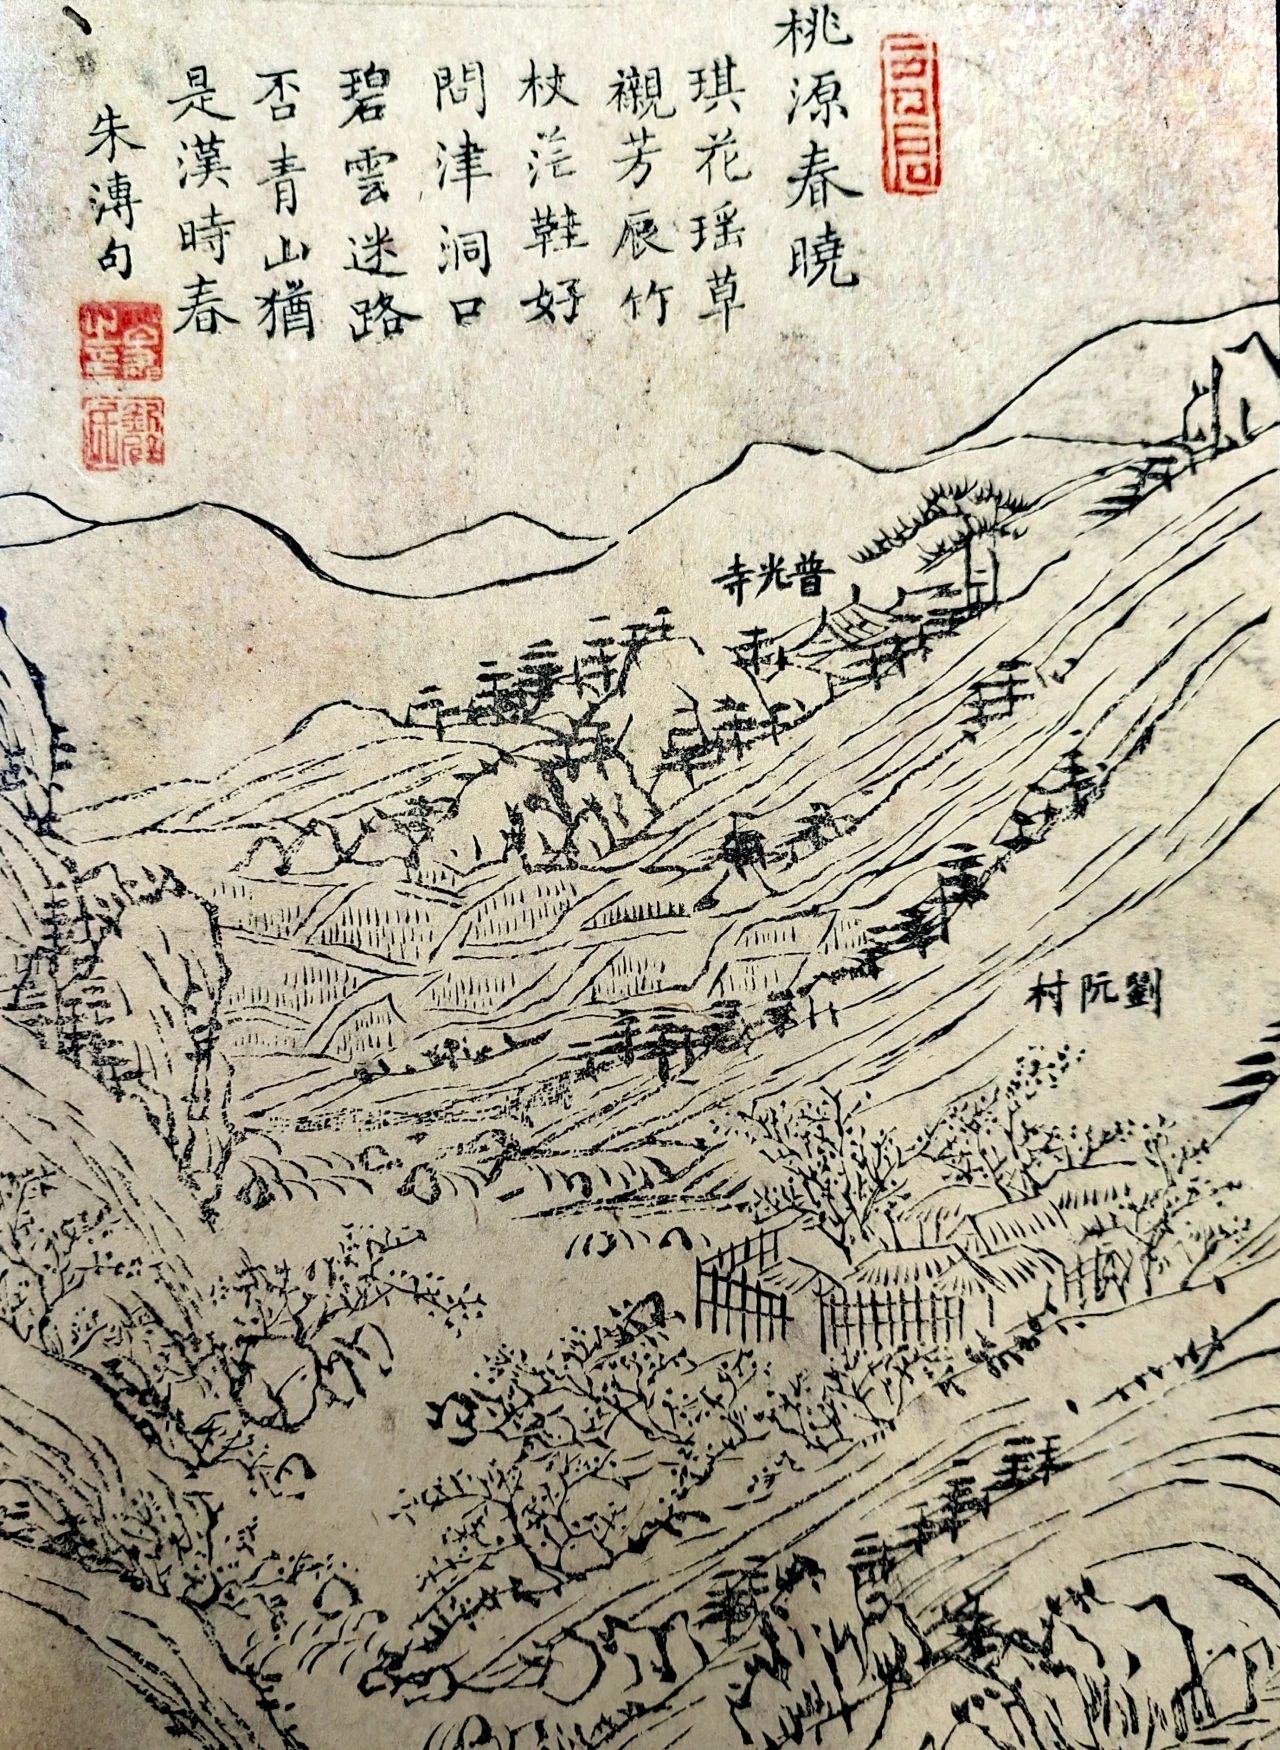 桃源春曉
琪花瑶草
襯芳辰竹
杖茫鞋好
問津洞口
碧雲迷路
否青山猶
是漢時春
朱溥句
普光寺
劉阮村